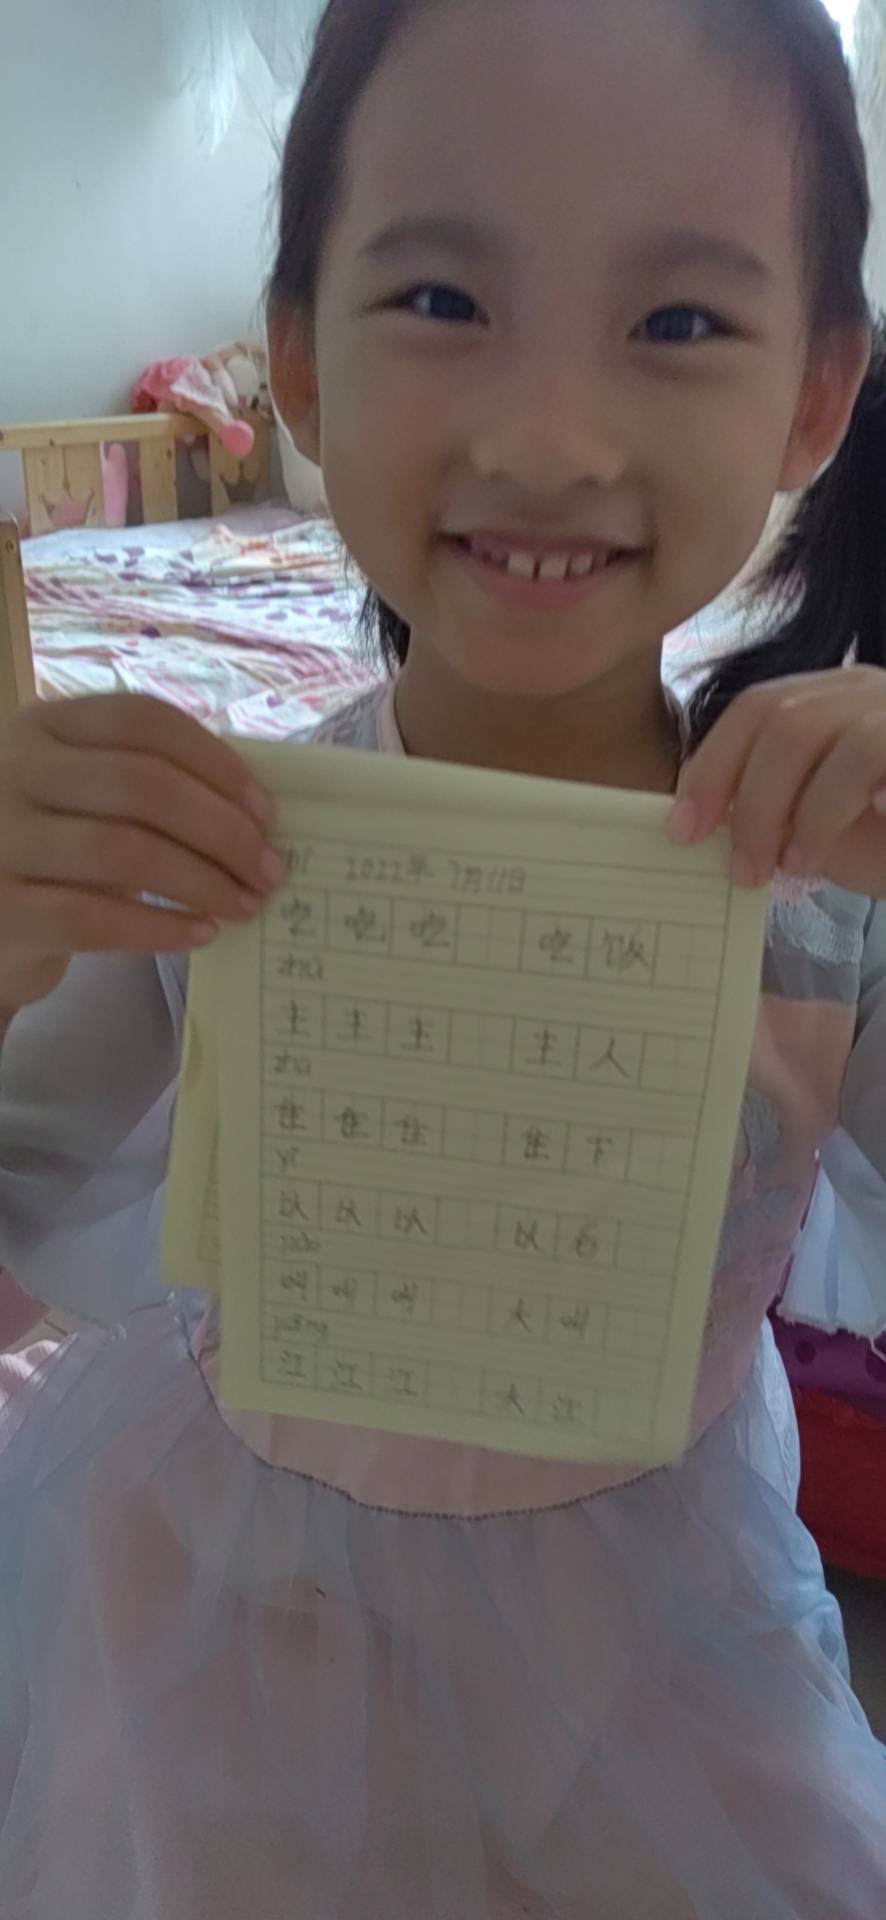 chī 2022年7月11日
吃 吃 吃 吃 饭
zhǔ
主 主 主 主 人
zhù
住 住 住 住 下
yǐ
以 以 以 以 后
jiào
叫 叫 叫 大 叫
jiāng
江 江 江 大 江